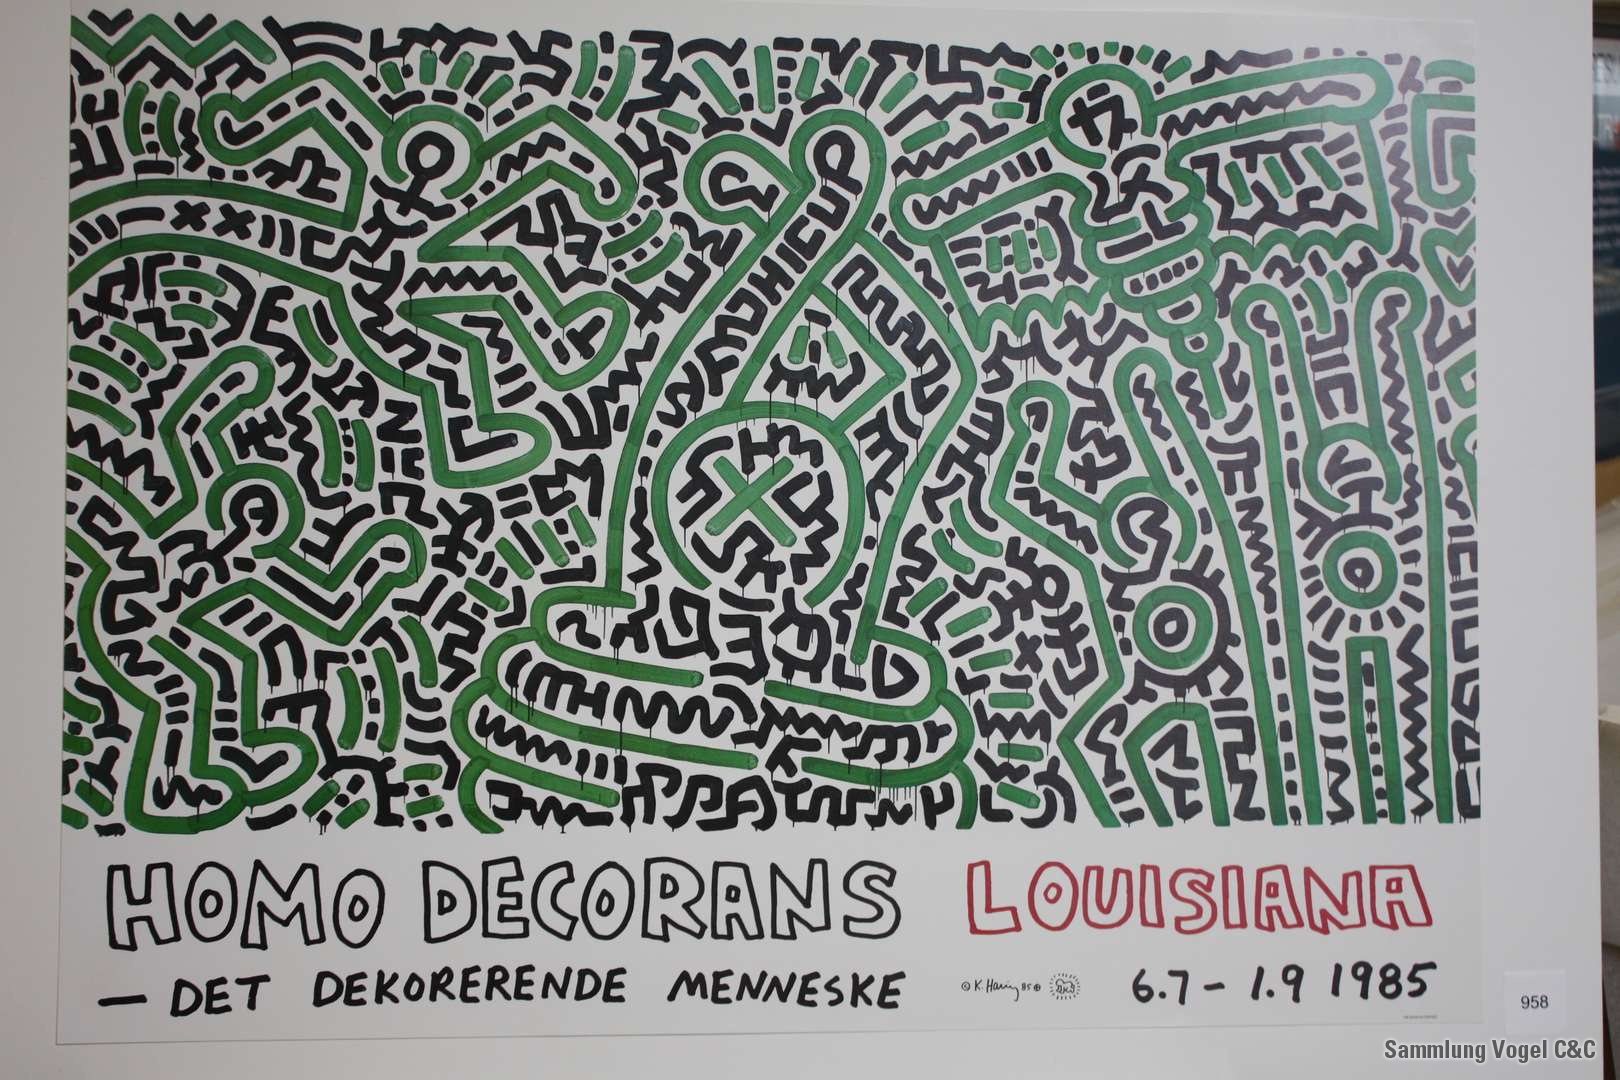 HOMO DECORANS LOUISIANA
— DET DEKORERENDE MENNESKE
© K. Haring 85 ⊕
6.7 – 1.9 1985
958
Sammlung Vogel C&C